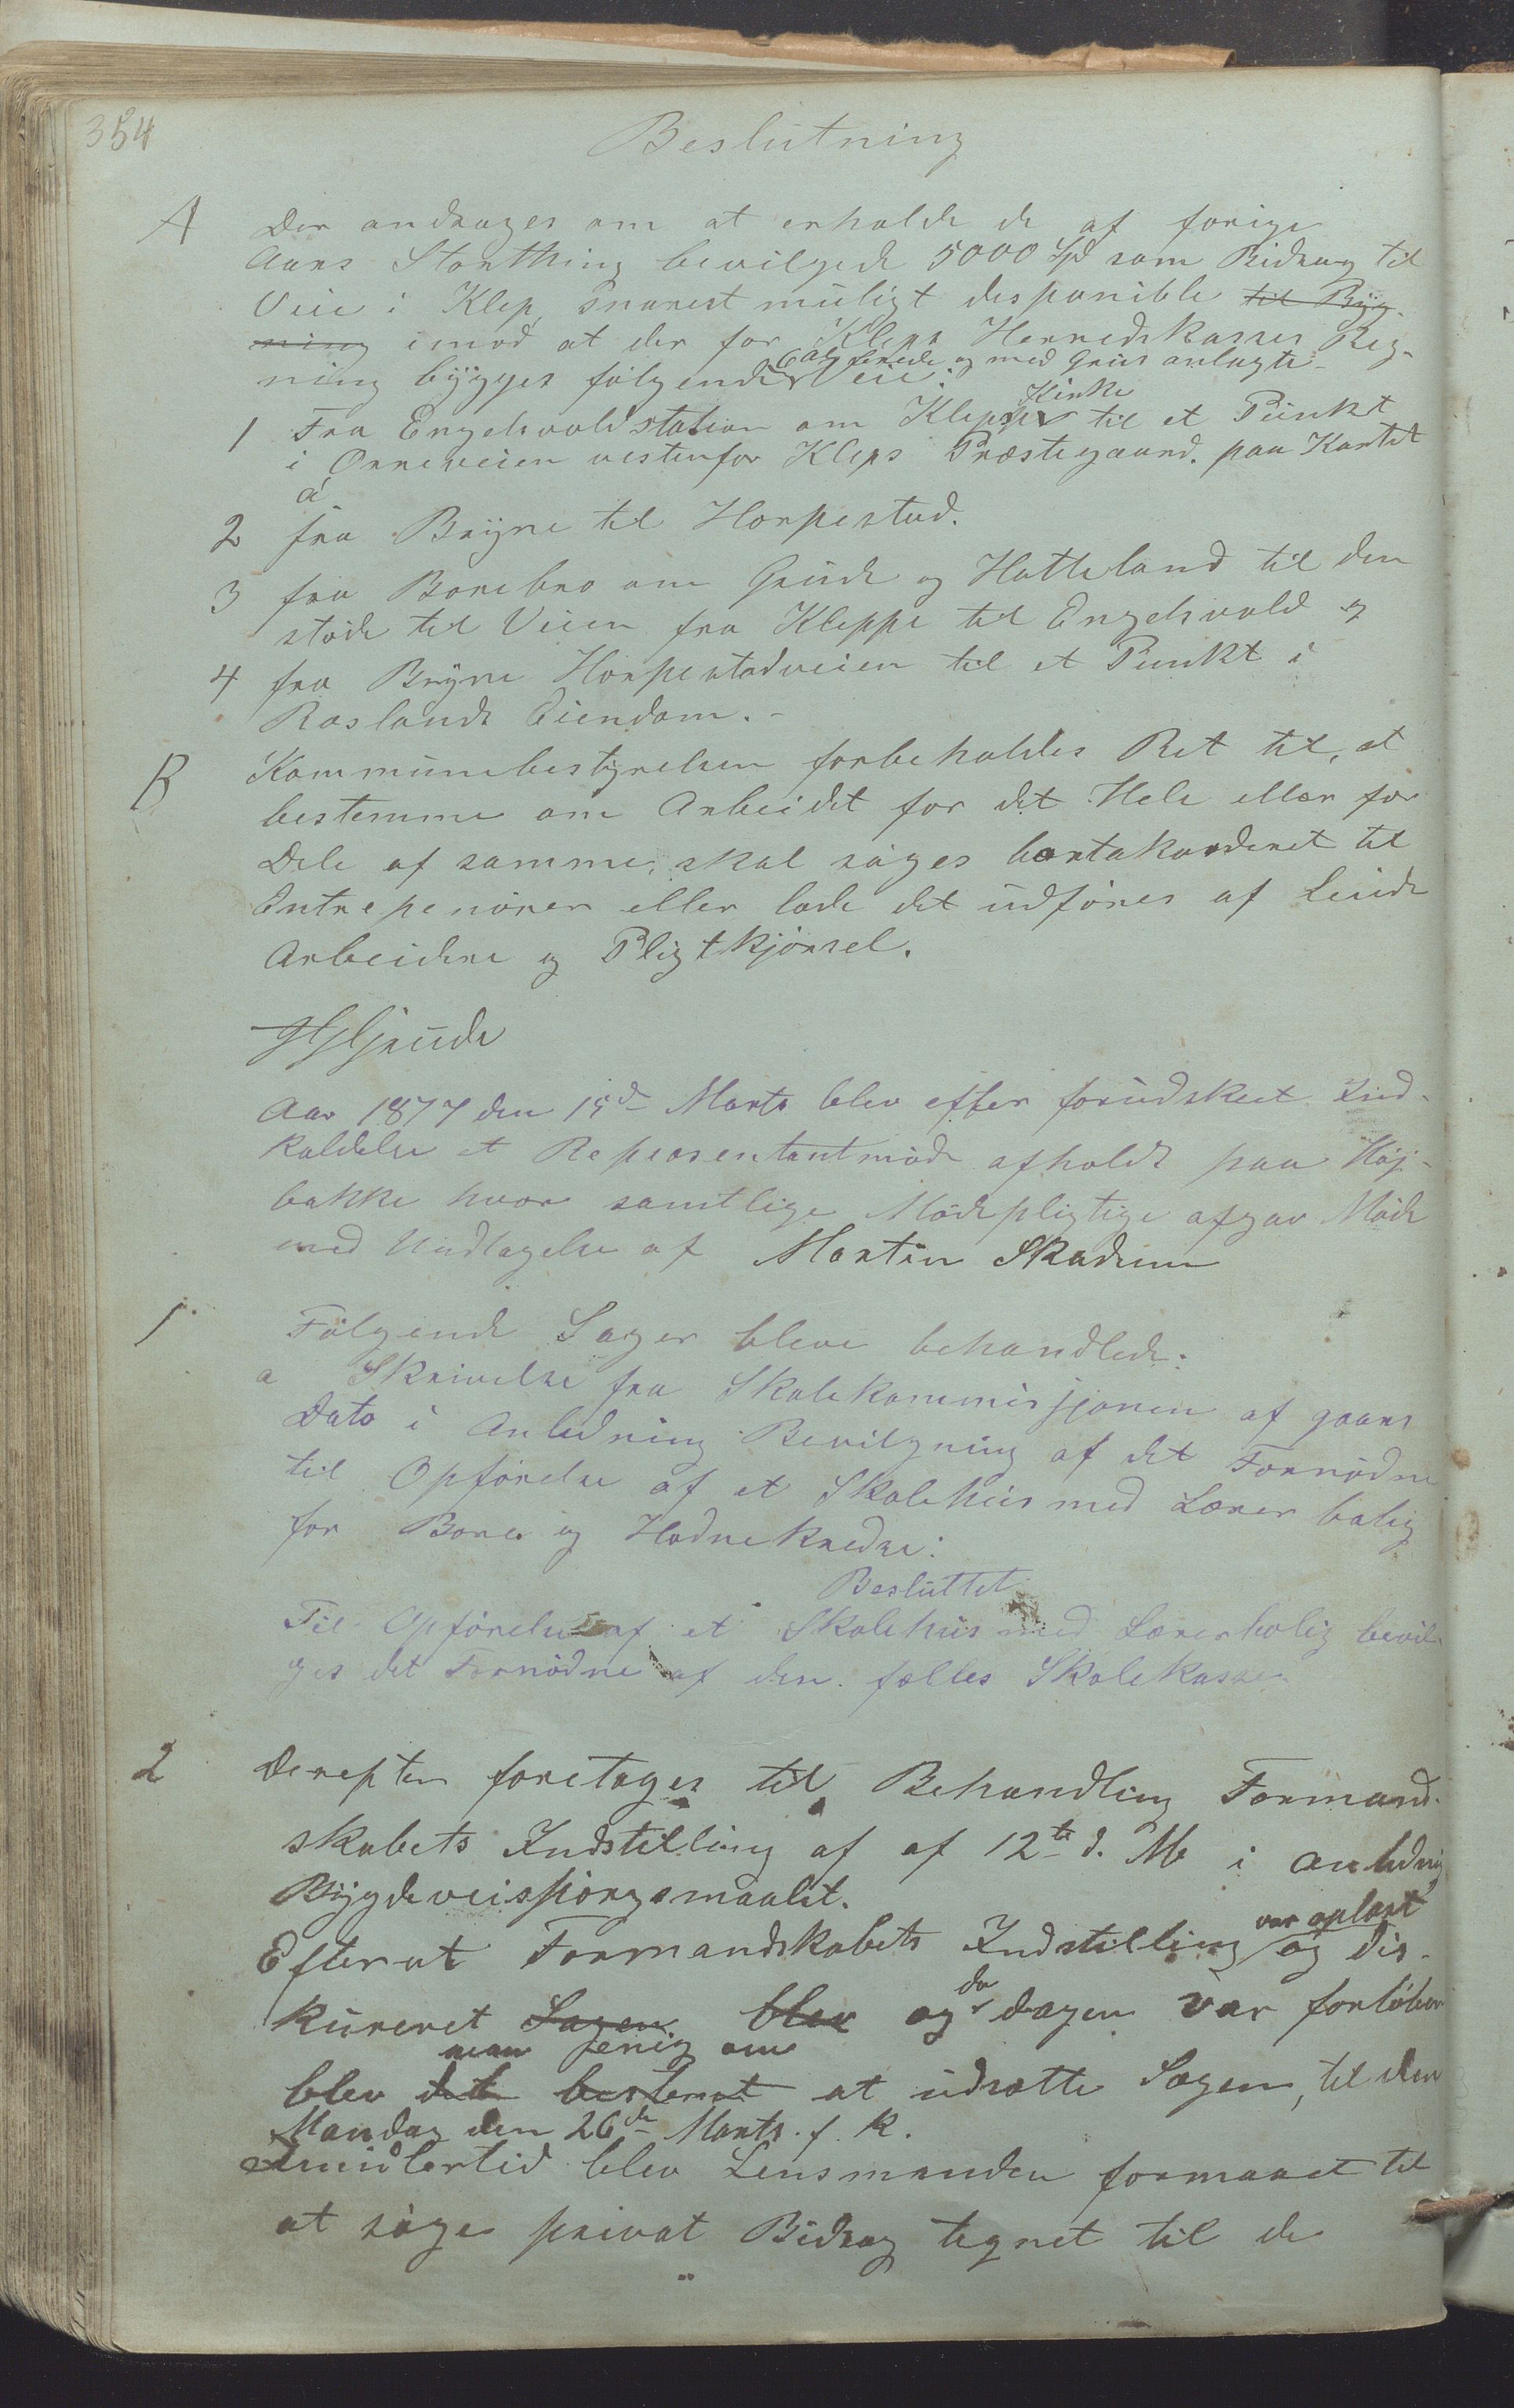 354
Beslutning
A Der andrages om at erholde de af forige
Aars Storthing bevilgede 5000 Spd som Bidrag til
Veie i Klep, snarest muligt disponible til Byg-
ning imod at der for Kleps Herredskasses Reg-
ning bygges følgende 6 al brede og med Grus anlagte Veie:
1 Fra Engelsvoldstation om Klepps Kirke til et Punkt
i Orreveien vestenfor Kleps Præstegaard. paa Kartet
a
2 fra Bryne til Horpestad.
3 fra Borebro om Grude og Hatteland til den
støde til Veien fra Kleppe til Engelsvold og
4 fra Bryne Horpestadveien til et Punkt i
Roslands Eiendom.-
B Kommunebestyrelsen forbeholdes Ret til, at
bestemme om Arbeidet for det Hele eller for
Dele af samme, skal søges bortakorderet til
Entrepenører eller lade det udføres af Leiede
Arbeidere og Pligtkjørsel.
Aar 1877 den 15de Marts blev efter forudskeet Ind-
kaldelse et Repræsentantmøde afholdt paa Høj-
bakke hvor samtlige Mødepligtige afgav Møde
med Undtagelse af Martin Skadsem
1. Følgende Sager bleve behandlede:
a Skrivelse fra Skolekommissjonen af gaars
Dato i Anledning Bevilgning af det Fornødne
til Opførelse af et Skolehus med Lærerbolig
for Bore og Hodnekredse:
Besluttet
Til Opførelse af et Skolehus med Lærerbolig bevil-
ges det Fornødne af den fælles Skolekasse.
2 Derefter foretoges til Behandling Formand-
skabets Indstilling af af 12te d. M. i Anledning
Bygdeveisspørgsmaalet.
Efterat Formandskabets Indstilling var oplæst og dis-
kureret Sagen blev og da dagen var forløben
blev det bestemt man jenig om at udsætte Sagen, til den
Mandag den 26de Marts f. k.
Imidlertid blev Lensmanden formaaet til
at søge privat Bidrag tegnet til de